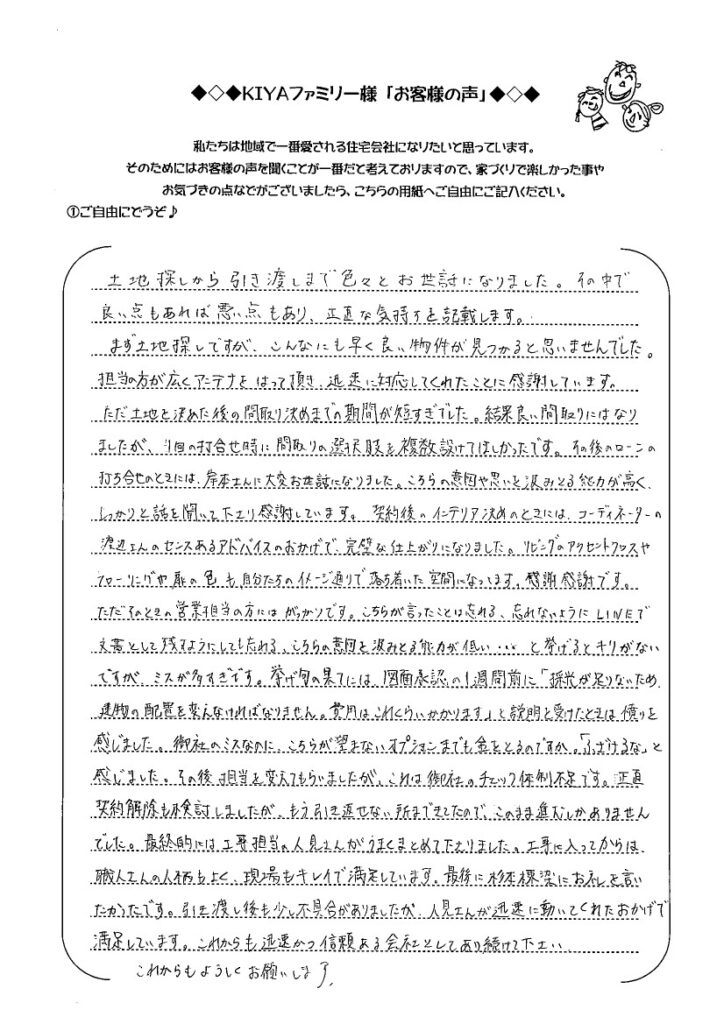 ◆◇◆KIYAファミリー様「お客様の声」◆◇◆
私たちは地域で一番愛される住宅会社になりたいと思っています。
そのためにはお客様の声を聞くことが一番だと考えておりますので、家づくりで楽しかった事や
お気づきの点などがございましたら、こちらの用紙へご自由にご記入ください。
①ご自由にどうぞ♪
土地探しから引き渡しまで色々とお世話になりました。その中で
良い点もあれば悪い点もあり、正直な気持ちを記載します。
まず土地探しですが、こんなにも早く良い物件が見つかると思いませんでした。
担当の方が広くアンテナをはって頂き、迅速に対応してくれたことに感謝しています。
ただ土地を決めた後の間取り決めまでの期間が短すぎでした。結果良い間取りにはなり
ましたが、今回の打合せ時に間取りの選択肢を複数設けてほしかったです。その後のローンの
打ち合せのときには、岸本さんに大変お世話になりました。こちらの意図や思いを汲みとる能力が高く、
しっかりと話を聞いて下さり感謝しています。契約後のインテリア決めのときには、コーディネーターの
渡辺さんのセンスあるアドバイスのおかげで、完璧な仕上がりになりました。リビングのアクセントクロスや
フローリングや扉の色も自分たちのイメージ通りで落ち着いた空間になっています。感謝感謝です。
ただそのときの営業担当の方にはがっかりです。こちらが言ったことは忘れる、忘れないようにLINEで
文書として残すようにしても忘れる、こちらの意図を汲みとる能力が低い…と挙げるとキリがない
ですが、ミスが多すぎです。挙げ句の果てには、図面承認の1週間前に「採光が足りないため、
建物の配置を変えなければなりません。費用はこれくらいかかります」と説明を受けたときは憤りを
感じました。御社のミスなのに、こちらが望まないオプションまでも金をとるのですか。「ふざけるな」と
感じました。その後担当を変えてもらいましたが、これは御社のチェック体制不足です。正直
契約解除も検討しましたが、もう引き返せない所まできてたので、このまま進むしかありません
でした。最終的には工事担当の人見さんがうまくまとめて下さりました。工事に入ってからは、
職人さんの人柄もよく、現場もキレイで満足しています。最後に杉本棟梁にお礼を言い
たかったです。引き渡し後も少し不具合がありましたが、人見さんが迅速に動いてくれたおかげで
満足しています。これからも迅速かつ信頼ある会社としてあり続けて下さい。
これからもよろしくお願いします。